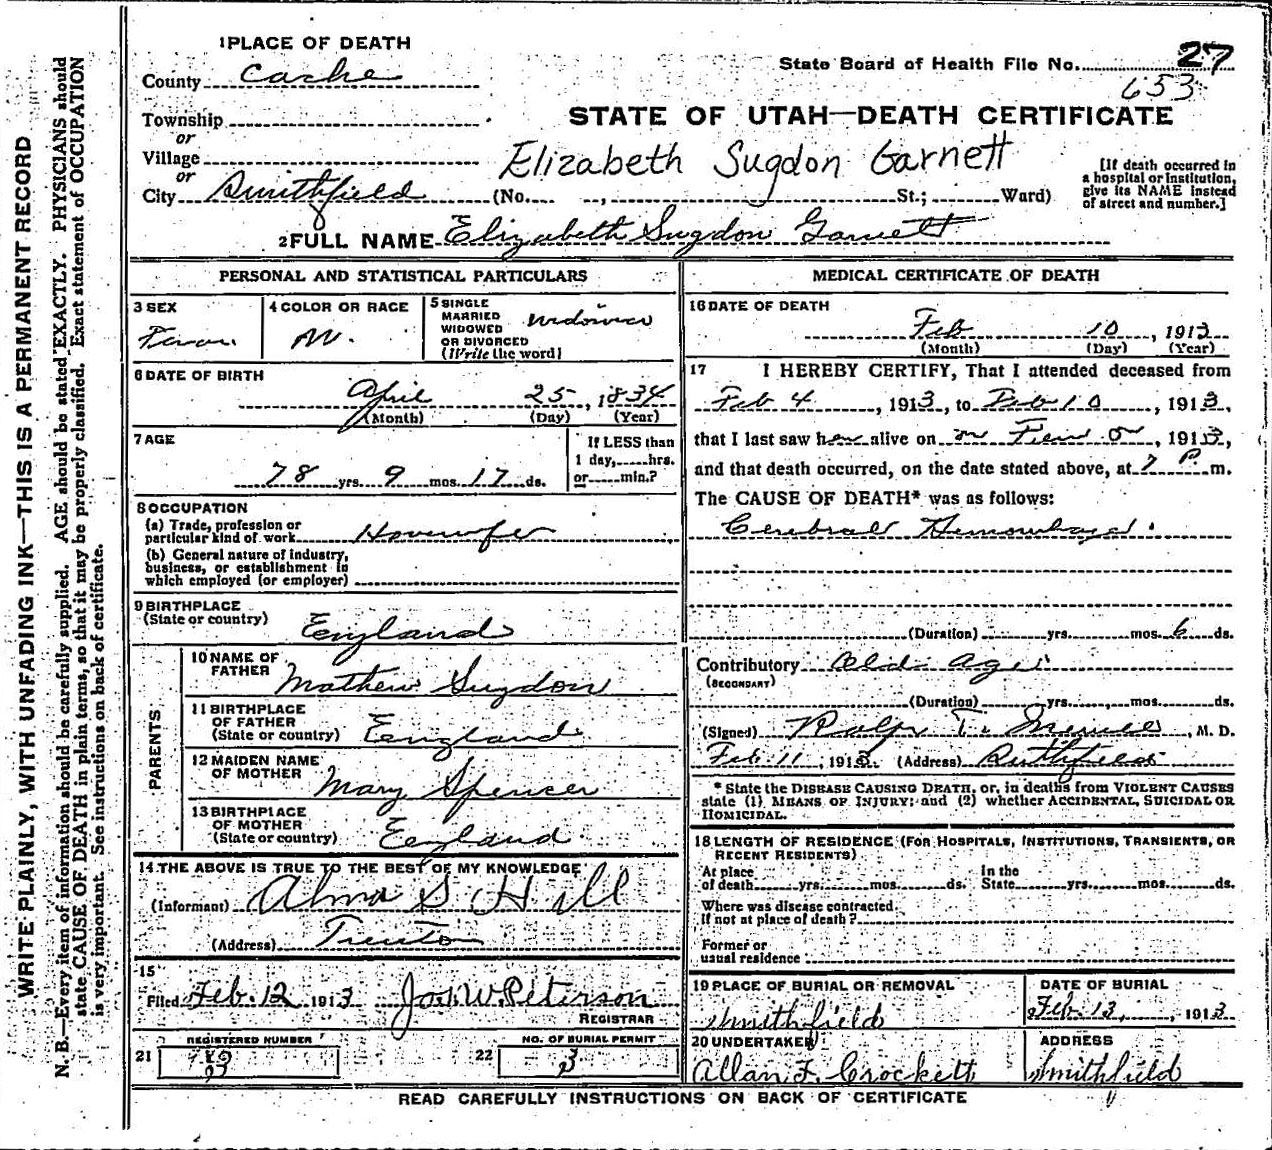 WRITE PLAINLY, WITH UNFADING INK—THIS IS A PERMANENT RECORD
N. B.—Every item of information should be carefully supplied. AGE should be stated EXACTLY. PHYSICIANS should
state CAUSE OF DEATH in plain terms, so that it may be properly classified. Exact statement of OCCUPATION
is very important. See instructions on back of certificate.
1 PLACE OF DEATH
County Cache
Township
or
Village
or
City Smithfield
State Board of Health File No. 27
653
STATE OF UTAH—DEATH CERTIFICATE
Elizabeth Sugdon Garnett
(No. , St.; Ward)
[If death occurred in
a hospital or institution,
give its NAME instead
of street and number.]
2 FULL NAME Elizabeth Sugdon Garnett
PERSONAL AND STATISTICAL PARTICULARS
3 SEX
4 COLOR OR RACE
W.
5 SINGLE
MARRIED
WIDOWED
OR DIVORCED
(Write the word)
6 DATE OF BIRTH
April 25, 1834
(Month) (Day) (Year)
7 AGE
78 yrs. 9 mos. 17 ds.
If LESS than
1 day, hrs.
or min.?
8 OCCUPATION
(a) Trade, profession or
particular kind of work Housewife
(b) General nature of industry,
business, or establishment in
which employed (or employer)
9 BIRTHPLACE
(State or country)
England
PARENTS
10 NAME OF
FATHER
Mathew Sugdon
11 BIRTHPLACE
OF FATHER
(State or country) England
12 MAIDEN NAME
OF MOTHER
Mary Spencer
13 BIRTHPLACE
OF MOTHER
(State or country) England
14 THE ABOVE IS TRUE TO THE BEST OF MY KNOWLEDGE
(Informant) Alma S Hall
(Address) Trenton
15
Filed Feb. 12 1913 Jos. W. Peterson
REGISTRAR
21 REGISTERED NUMBER
22 NO. OF BURIAL PERMIT
3
MEDICAL CERTIFICATE OF DEATH
16 DATE OF DEATH
Feb 10, 1913
(Month) (Day) (Year)
17 I HEREBY CERTIFY, That I attended deceased from
Feb 4, 1913, to Feb 10, 1913,
that I last saw her alive on , 1913,
and that death occurred, on the date stated above, at 7 P. m.
The CAUSE OF DEATH* was as follows:
Cerebral Hemorrhage.
(Duration) yrs. mos. 6 ds.
Contributory Old Age
(SECONDARY)
(Duration) yrs. mos. ds.
(Signed) Ralph T. , M. D.
Feb. 11, 1913. (Address) Smithfield
* State the DISEASE CAUSING DEATH, or, in deaths from VIOLENT CAUSES
state (1) MEANS OF INJURY; and (2) whether ACCIDENTAL, SUICIDAL OR
HOMICIDAL.
18 LENGTH OF RESIDENCE (FOR HOSPITALS, INSTITUTIONS, TRANSIENTS, OR
RECENT RESIDENTS)
At place of death yrs. mos. ds. In the State yrs. mos. ds.
Where was disease contracted.
If not at place of death?
Former or
usual residence
19 PLACE OF BURIAL OR REMOVAL
Smithfield
DATE OF BURIAL
Feb. 13, 1913
20 UNDERTAKER
Allan F. Crockett
ADDRESS
Smithfield
READ CAREFULLY INSTRUCTIONS ON BACK OF CERTIFICATE